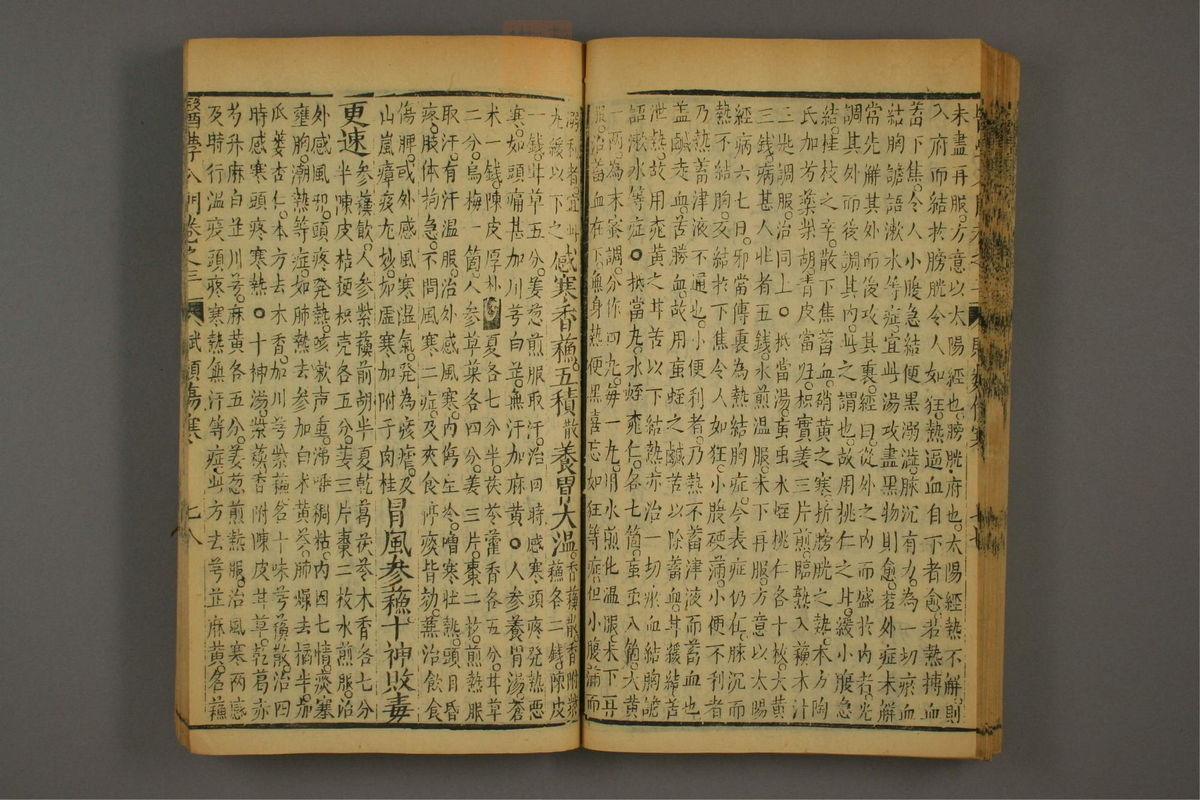 未盡再服方意以太陽經也膀胱府也太陽經熱不解則
入府而結於膀胱令人如狂熱逼血自下者愈若熱搏血
畜下焦令人小腹急結便黑溺澁脉沉有力為一切瘀血
結胸譫語漱水等症宜此湯攻盡黑物則愈若外症未解
當先解其外而後攻其裏經曰從外之內而盛於內者先
調其外而後調其內此之謂也故用桃仁之甘緩小腹急
結桂枝之辛散下焦蓄血硝黃之寒折膀胱之熱本方陶
氏加芍藥柴胡青皮當歸枳實姜三片煎臨熱入蘓木汁
三匙調服治同上抵當湯虻虫水蛭桃仁各十枚大黃
三錢病甚人壯者五錢水煎溫服未下再服方意以太陽
經病六七日邪當傳裏為熱結胸症今表症仍在脉沉而
熱不結胸反結於下焦令人如狂小腹硬滿小便不利者
乃熱蓄津液不通也小便利者乃熱不蓄津液而蓄血也
蓋鹹走血苦勝血故用虻蛭之鹹苦以除蓄血甘緩結苦
泄熱故用桃黃之甘苦以下結熱亦治一切瘀血結胸譫
語漱水等症抵當丸水蛭桃仁各七箇虻虫八箇大黃
一兩為末蜜調分作四丸每一丸用水煎化溫服未下再
服治蓄血在下無身熱便黑喜忘如狂等症但小腹滿而
丸緩以下之感寒香蘓五積散養胃大溫香蘓散香附紫
蘓各二錢陳皮
一錢甘草五分姜葱煎服取汗治四時感寒頭疼發熱惡
寒如頭痛甚加川芎白芷無汗加麻黃人參養胃湯蒼
术一錢陳皮厚朴半夏各七分半茯苓藿香各五分甘草
二分烏梅一箇人參草菓各四分姜三片棗二枚煎熱服
取汗有汗溫服治外感風寒內傷生冷噌寒壯熱頭目昏
疼肢体拘急不問風寒二症及夾食停痰皆効兼治飲食
傷脾或外感風寒濕氣發為痰瘧及
山嵐瘴疫尤妙如虛寒加附子肉桂冒風參蘓十神敗毒
更速參蘓飲人參紫蘓前胡半夏乾葛茯苓木香各七分
半陳皮桔梗枳壳各五分姜三片棗二枚水煎服治
外感風邪頭疼發熱咳嗽声重涕唾稠粘內因七情痰塞
壅胸潮熱等症如肺熱去參加白术黃芩肺燥去橘半加
瓜蔞杏仁本方去木香加川芎柴胡名十味芎蘓散治四
時感寒頭疼寒熱十神湯紫蘓香附陳皮甘草乾葛赤
芍升麻白芷川芎麻黃各五分姜葱煎熱服治風寒兩感
及時行溫疫頭疼寒熱無汗等症此方去芎芷麻黃名蘓
醫學入門卷之三
賦類傷寒
七八